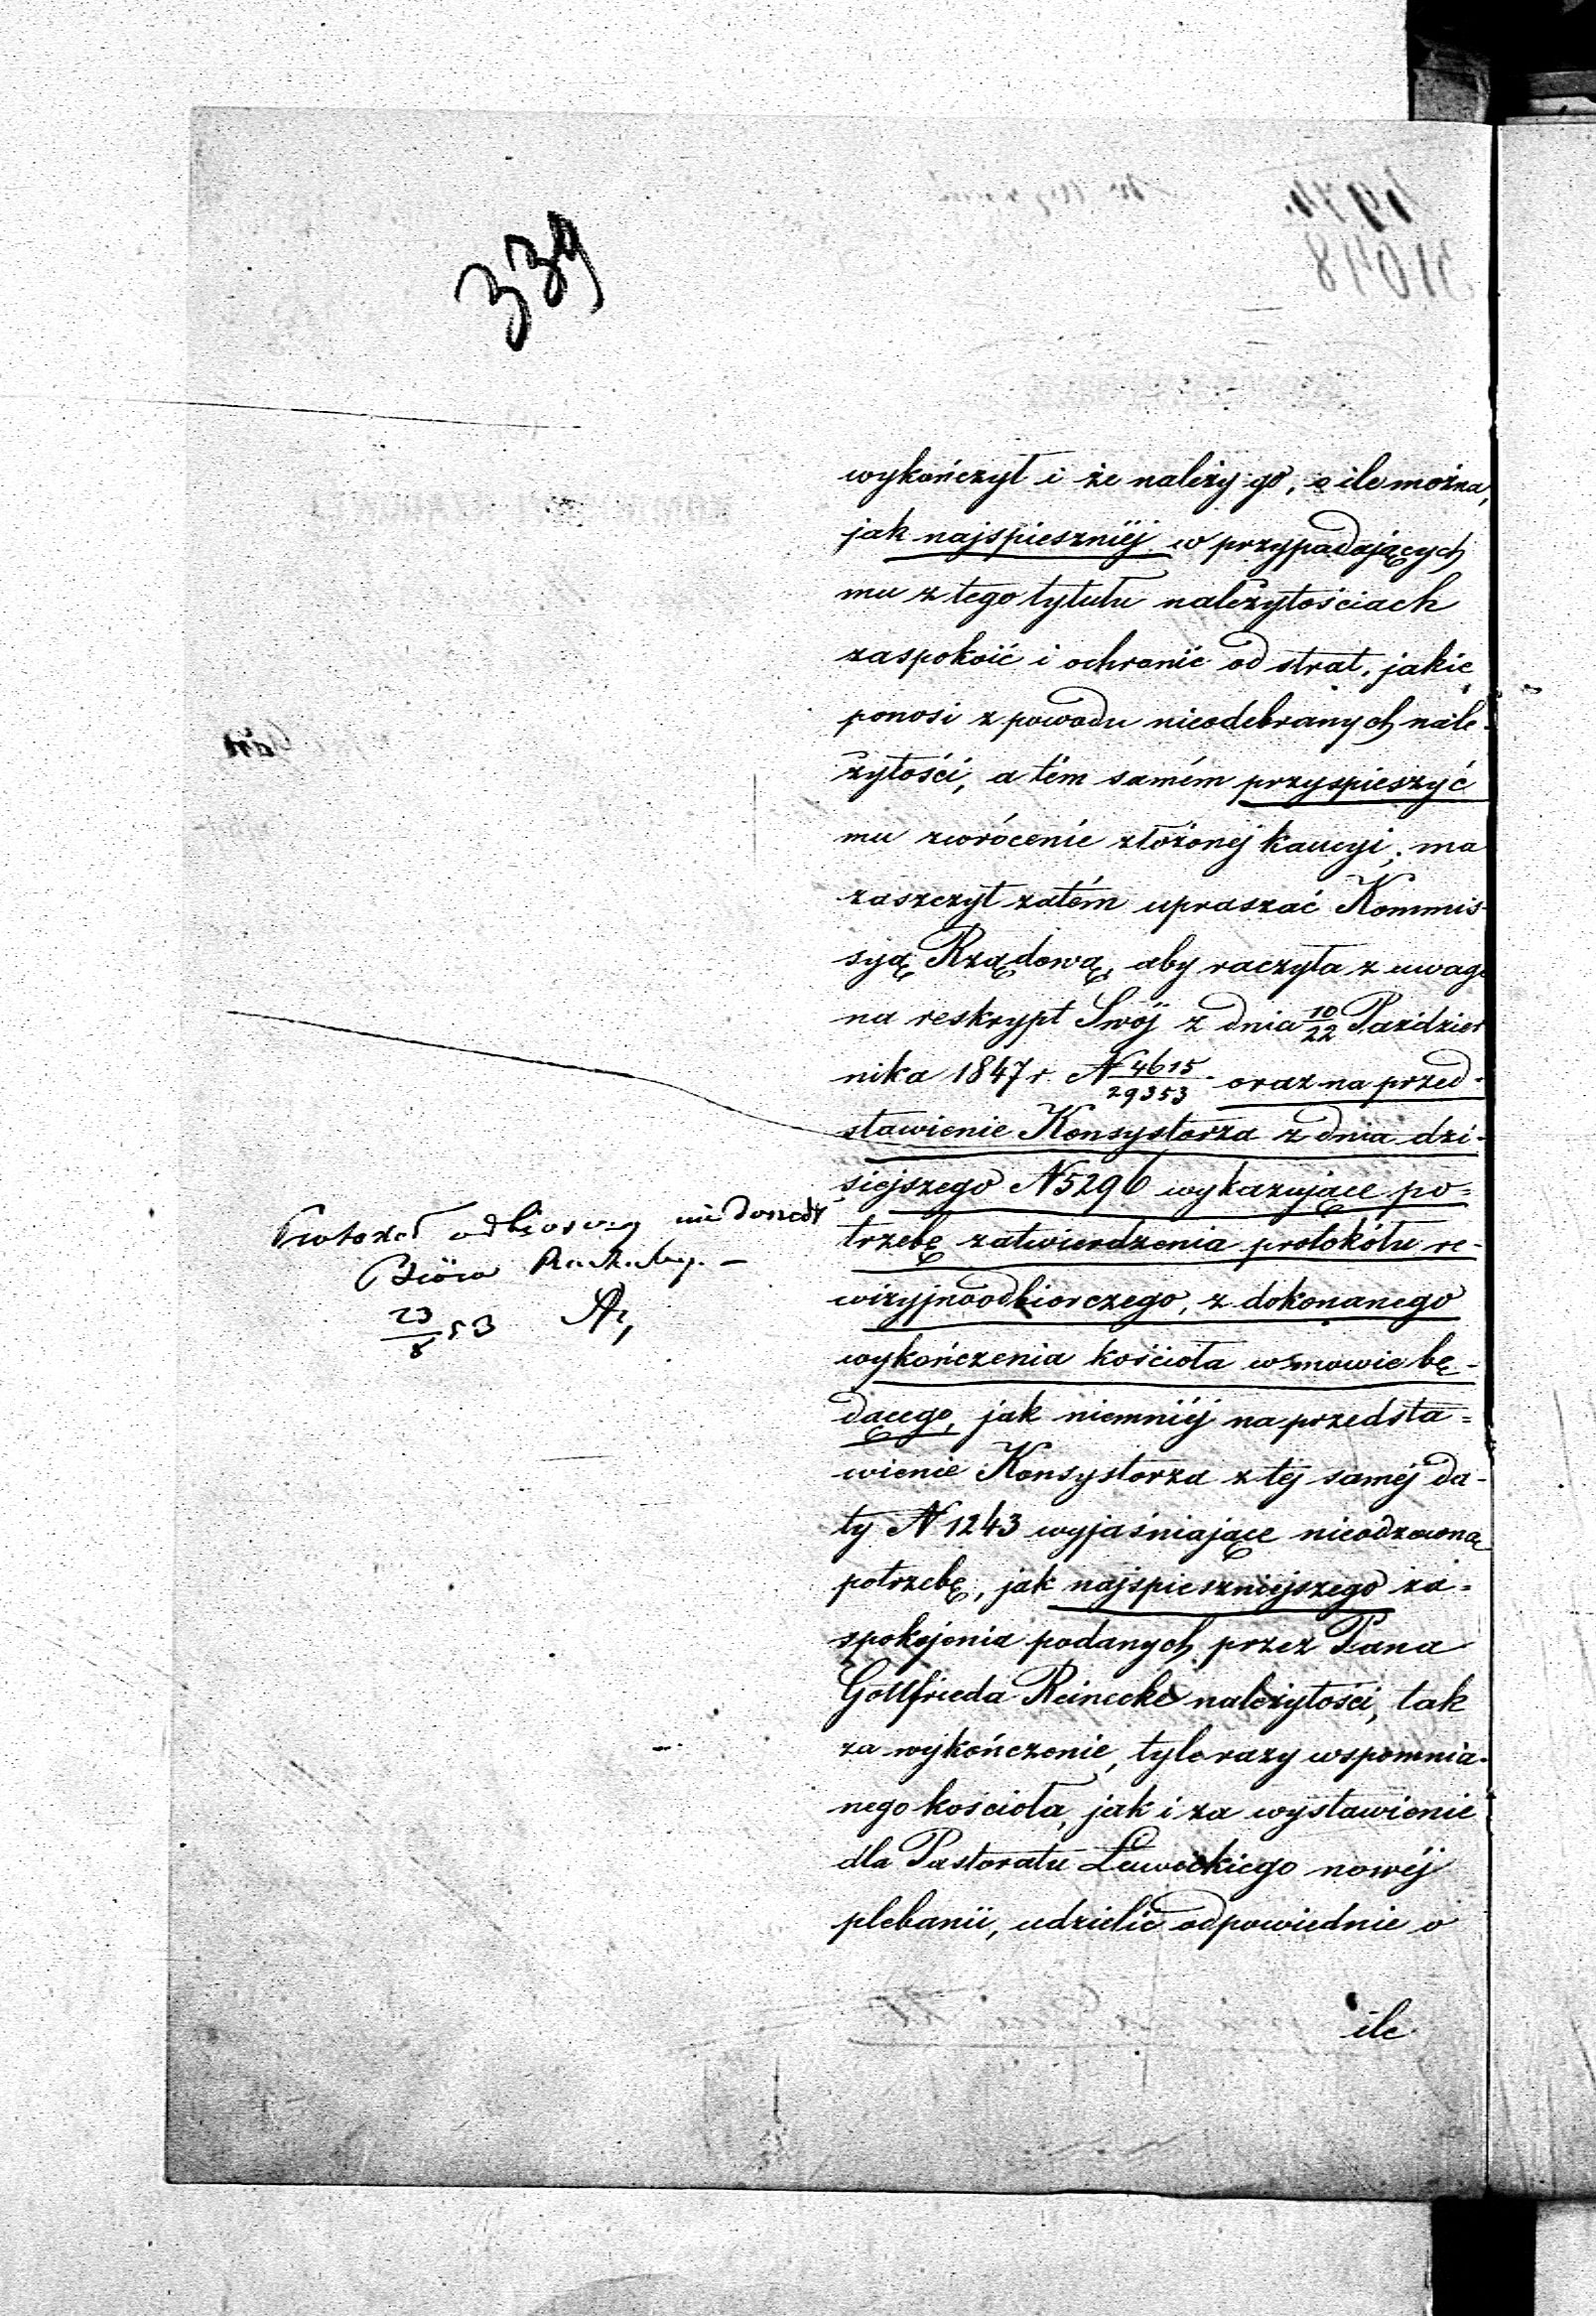 339
wykończył i że należy go, o ile można,
jak najspieszniéj w przypadających
mu z tego tytułu należytościach
zaspokoić i ochronić od strat, jakie
ponosi z powodu nieodebranych nale-
żytości, a tém samém przyspieszyć
mu zwrócenie złożonéj kaucyi; ma
zaszczyt zatém upraszać Kommis-
syą Rządową, aby raczyła z uwagi
na reskrypt Swój z dnia 10/22 Paździer
nika 1847 r. N 4615/29353 oraz na przed-
stawienie Konsystorza z dnia dzi-
siejszego N 5296 wykazujące po-
trzebę zatwierdzenia protokółu re-
wizyjnoodbiorczego, z dokonanego
wykończenia kościoła w mowie bę-
dącego, jak niemniéj na przedsta=
wienie Konsystorza z téj saméj da-
ty N 1243 wyjaśniające nieodzowną
potrzebę, jak najspieszniejszego za=
spokojenia podanych przez Pana
Gottfrieda Reinecke należytości, tak
za wykończenie, tyle razy wspomnia-
nego kościoła, jak i za wystawienie
dla Pastoratu Ławeckiego nowéj
plebanii, udzielić odpowiednie o
ile
odbiorczy nie doszedł
Bióra
23/8 53